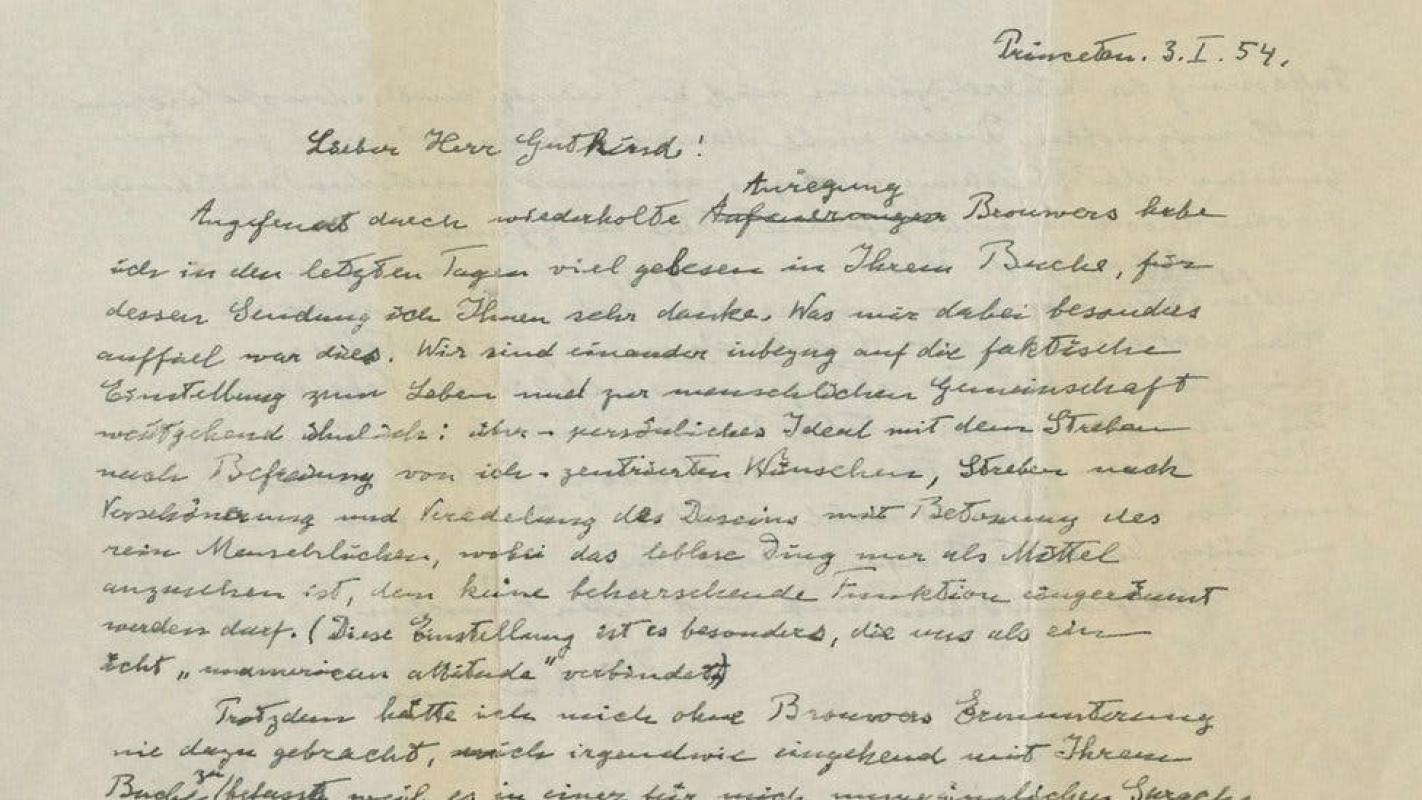 Princeton. 3. I. 54.
Lieber Herr Gutkind!
Anregung
Angefeuert durch wiederholte Aufmunterungen Brouwers habe
ich in den letzten Tagen viel gelesen in Ihrem Buche, für
dessen Sendung ich Ihnen sehr danke. Was mir dabei besonders
auffiel war dies. Wir sind einander inbezug auf die faktische
Einstellung zum Leben und zur menschlichen Gemeinschaft
weitgehend ähnlich: über-persönliches Ideal mit dem Streben
nach Befreiung von ich-zentrierten Wünschen, Streben nach
Verschönerung und Veredelung des Daseins mit Betonung des
rein Menschlichen, wobei das leblose Ding nur als Mittel
anzusehen ist, dem keine beherrschende Funktion eingeräumt
werden darf. (Diese Einstellung ist es besonders, die uns als ein
echt „unamerican attitude" verbindet)
Trotzdem hätte ich mich ohne Brouwers Ermunterung
nie dazu gebracht, mich irgendwie eingehend mit Ihrem
Buche zu befassen, weil es in einer für mich unzugänglichen Sprache